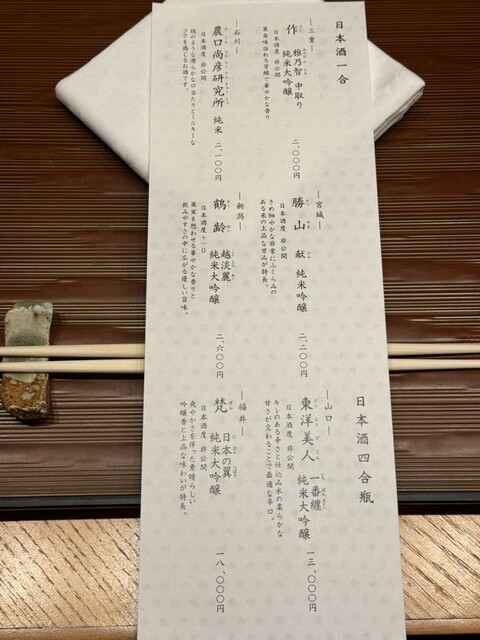 日本酒一合
―三重―
作 雅乃智 中取り
純米大吟醸
日本酒度 非公開
果実味溢れる芳醇で華やかな香り
二、〇〇〇円
―石川―
農口尚彦研究所 純米
日本酒度 非公開
絹のような滑らかな口当たりとミルキーな
コクを感じるお酒です。
二、一〇〇円
―宮城―
勝山 献 純米吟醸
日本酒度 非公開
きめ細やかな芳薫にふくらみの
ある米の上品な甘みが特長。
二、二〇〇円
―新潟―
鶴齢 越淡麗
純米大吟醸
日本酒度+一〇
果実を想わせる華やかな香りと
飲みやすさの中に広がる優しい旨味。
二、六〇〇円
日本酒四合瓶
―山口―
東洋美人 一番纏
純米大吟醸
日本酒度 非公開
キレのある辛さと仕込み水の柔らかな
甘さが交わることで最適な辛口。
一三、〇〇〇円
―福井―
梵 日本の翼
純米大吟醸
日本酒度 非公開
爽やかさを伴った素晴らしい
吟醸香と上品な味わいが特長。
一八、〇〇〇円